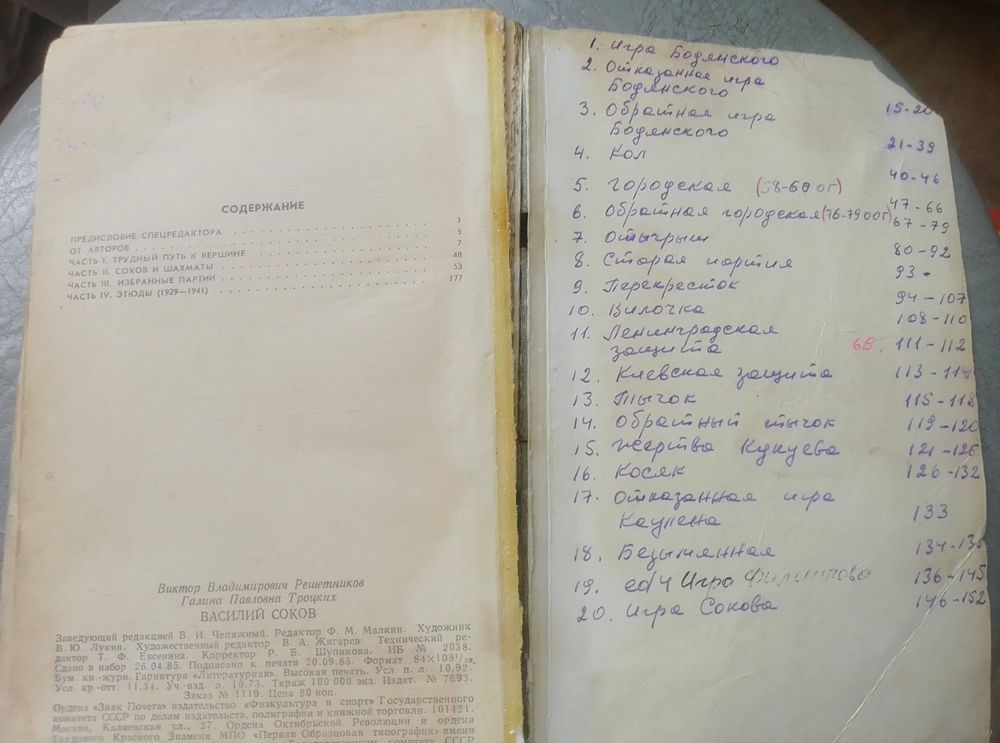 СОДЕРЖАНИЕ
ПРЕДИСЛОВИЕ СПЕЦРЕДАКТОРА 3
ОТ АВТОРОВ 5
ЧАСТЬ I. ТРУДНЫЙ ПУТЬ К ВЕРШИНЕ 7
ЧАСТЬ II. СОКОВ И ШАХМАТЫ 48
ЧАСТЬ III. ИЗБРАННЫЕ ПАРТИИ 53
ЧАСТЬ IV. ЭТЮДЫ (1929—1941) 177
Виктор Владимирович Решетников
Галина Павловна Троцких
ВАСИЛИЙ СОКОВ
Заведующий редакцией В. И. Чепижный. Редактор Ф. М. Малкин. Художник
В. Ю. Лукин. Художественный редактор В. А. Жигарев. Технический ре-
дактор Т. Ф. Евсенина. Корректор Р. Б. Шупикова. ИБ № 2038.
Сдано в набор 26.04.85. Подписано к печати 20.09.85. Формат 84×108¹/₃₂.
Бум. кн.-журн. Гарнитура «Литературная». Высокая печать. Усл. п. л. 10,92.
Усл. кр.-отт. 11,34. Уч.-изд. л. 10,73. Тираж 100 000 экз. Издат. № 7693.
Заказ № 1119. Цена 80 коп.
Ордена «Знак Почета» издательство «Физкультура и спорт» Государственного
комитета СССР по делам издательств, полиграфии и книжной торговли. 101421.
Москва, Каляевская ул., 27. Ордена Октябрьской Революции и ордена
Трудового Красного Знамени МПО «Первая Образцовая типография» имени
комитете СССР
1. Игра Бодянского
2. Отказанная игра
Бодянского
3. Обратная игра 15-20
Бодянского
4. Кол 21-39
5. Городская (58-60 ог) 40-46
6. Обратная городская (76-79 ог) 47-66
7. Отыгрыш 67-79
8. Старая партия 80-92
9. Перекресток 93
10. Вилочка 94-107
11. Ленинградская 108-110
защита 65. 111-112
12. Киевская защита 113-114
13. Тычок 115-118
14. Обратный тычок 119-120
15. Жертва Кукуева 121-125
16. Косяк 126-132
17. Отказанная игра
Каулена 133
18. Безымянная 134-135
19. ed4 Игра Филиппова 136-145
20. Игра Сокова 146-152